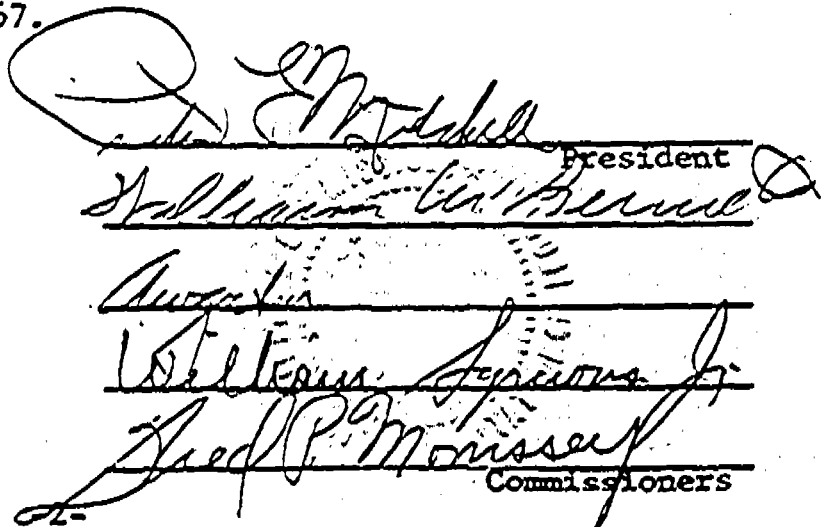 67.
E. Mitchell
President
William M. Bennett
William Symons Jr.
Fred P. Morrissey
Commissioners
-2-